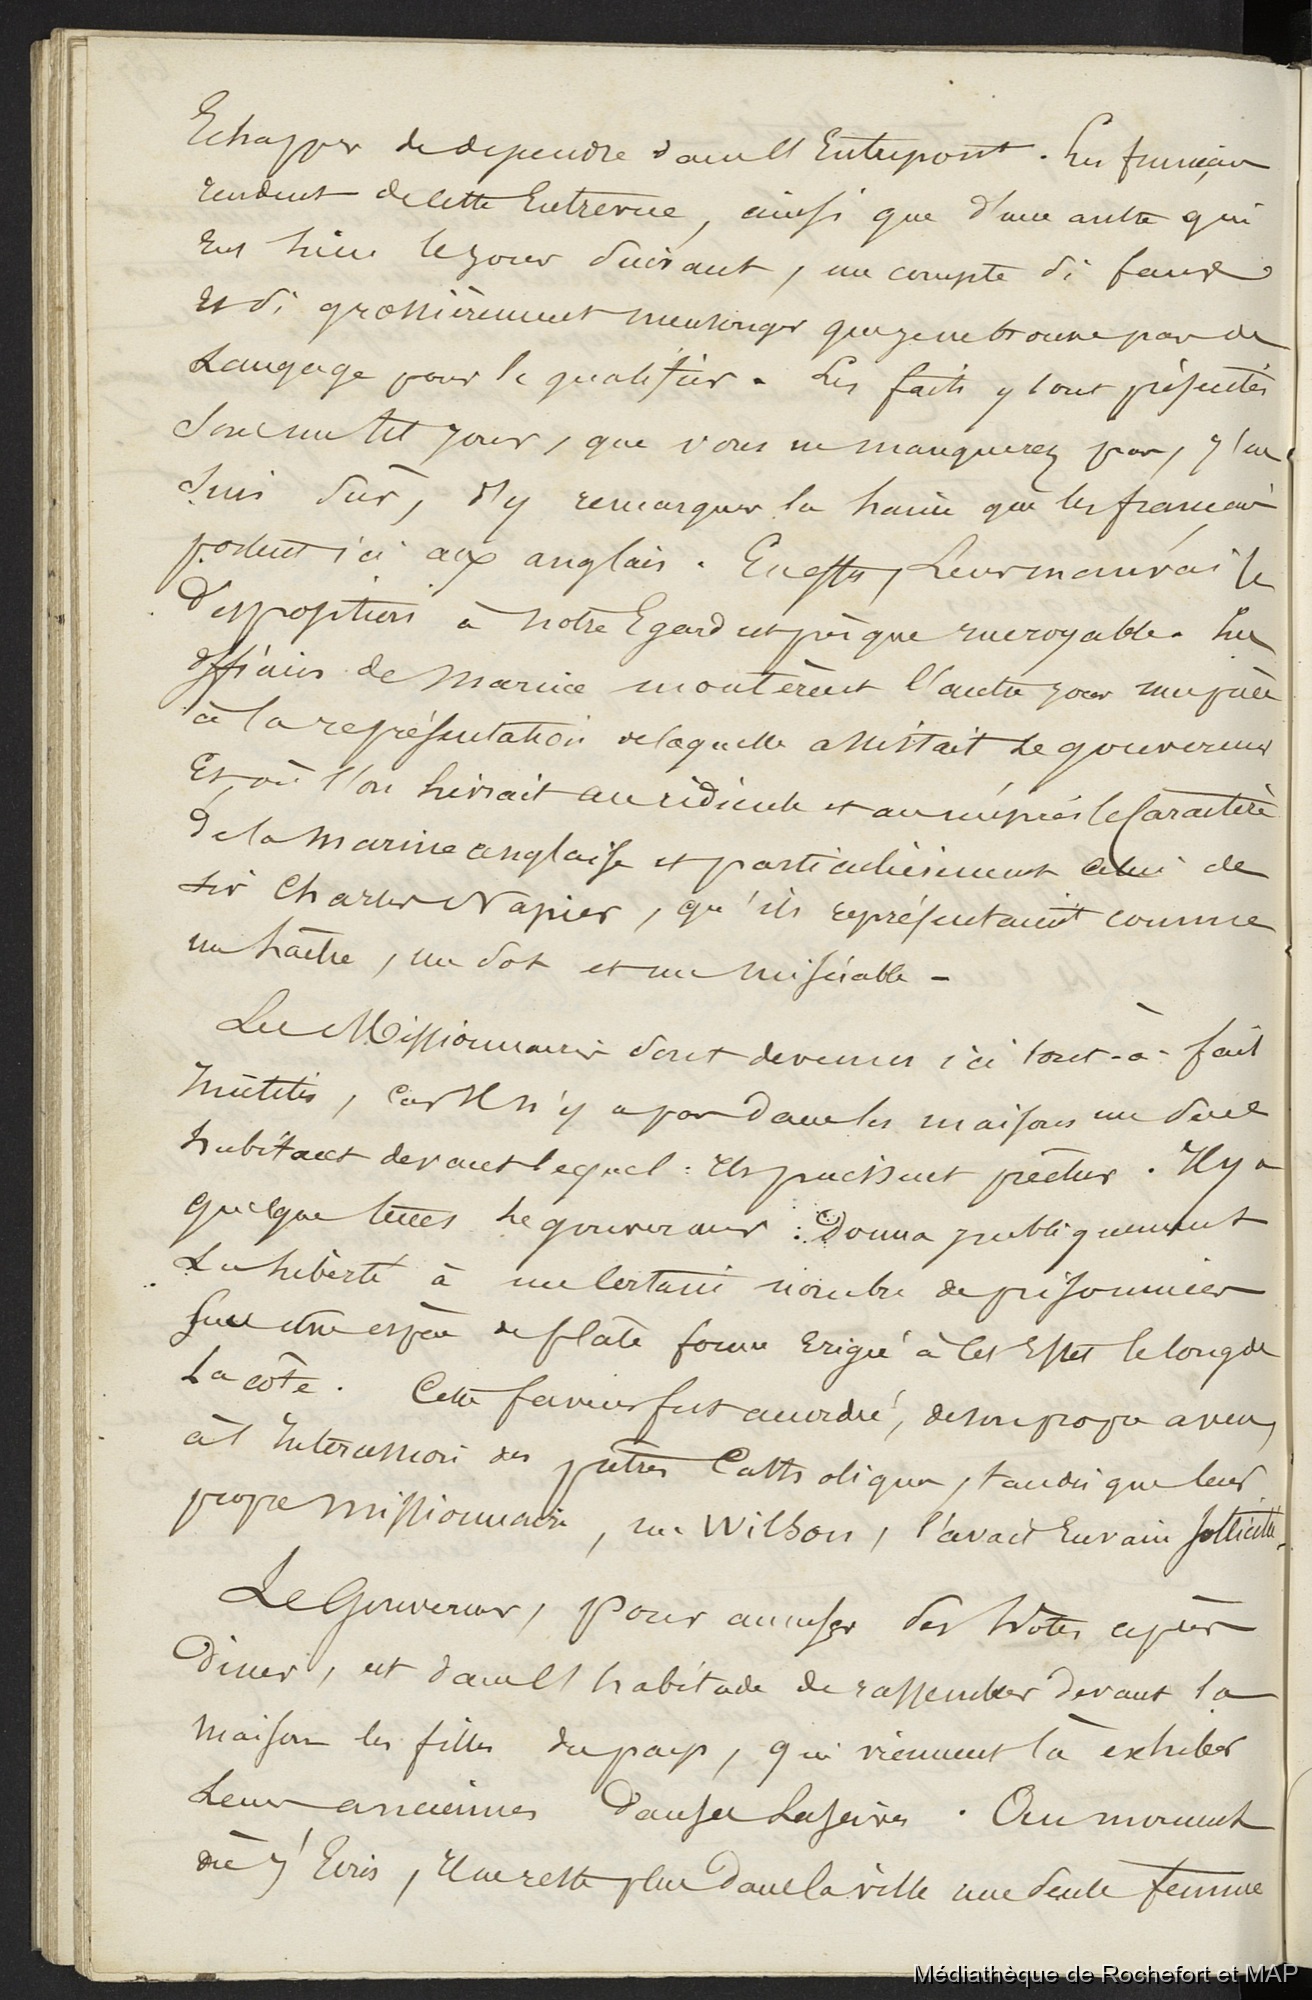 Echapper de dependre dans l'Entrepont. Les français
rendent de cette Entrevue, ainsi que d'une autre qui
Eut lieu le jour suivant, un compte si faux
et si grossièrement mensonger que je ne trouve pas de
Langage pour le qualifier. Les faits y sont présentés
sous un tel jour, que vous ne manquerez pas, j'en
suis sûr, d'y remarquer la haine que les français
portent ici aux anglais. En effet, Leur mauvaise
disposition à notre Egard est presque incroyable. Les
officiers de Marine montèrent l'autre jour une pièce
à la représentation de laquelle assistait le gouverneur
Et où l'on livrait au ridicule et au mépris le Caractère
de la Marine anglaise et particulièrement celui de
sir Charles Napier, qu'ils représentaient comme
un traître, un sot et un misérable -
Les Missionnaires sont devenus ici tout-à-fait
Inutiles, car Il n'y a pas dans les maisons un seul
habitant devant lequel : Ils puissent prêcher. Il y a
quelque temps le gouverneur : donna publiquement
La liberté à un certain nombre de prisonniers
sur une espèce de plate forme Erigée à cet Effet le long de
La côte. Cette faveur fut accordée, de son propre aveu,
à l'Intercession des prêtres Catholiques, tandis que leur
propre Missionnaire, mr Wilson, l'avait En vain sollicitée.
Le Gouverneur, pour amuser ses hôtes après
diner, est dans l'habitude de rassembler devant sa
Maison les filles du pays, qui viennent là exhiber
Leurs anciennes danses Lascives. Au moment
où j'Ecris, Il ne reste plus dans la ville une seule femme
Médiathèque de Rochefort et MAP